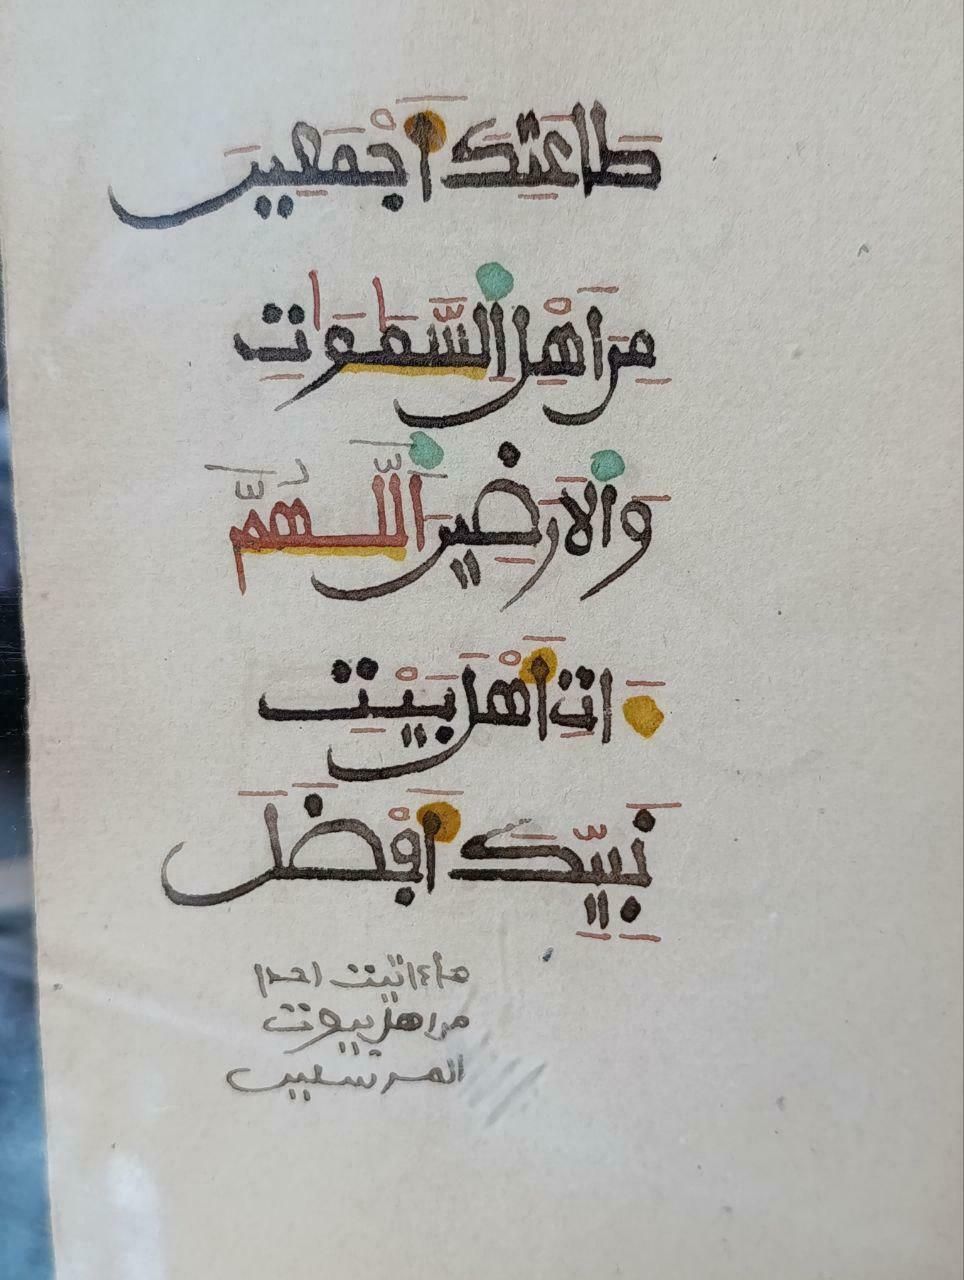 طَاعَتِكَ أَجْمَعِينَ
مِنَ اَهْلِ السَّمَٰوَٰتِ
وَالَارَضِينَ اللَّهُمَّ
ءَاتِ أَهْلَ بَيْتِ
نَبِيِّكَ أَفْضَلَ
ما ءاتيت احدا
من اهل بيوت
المرسلين